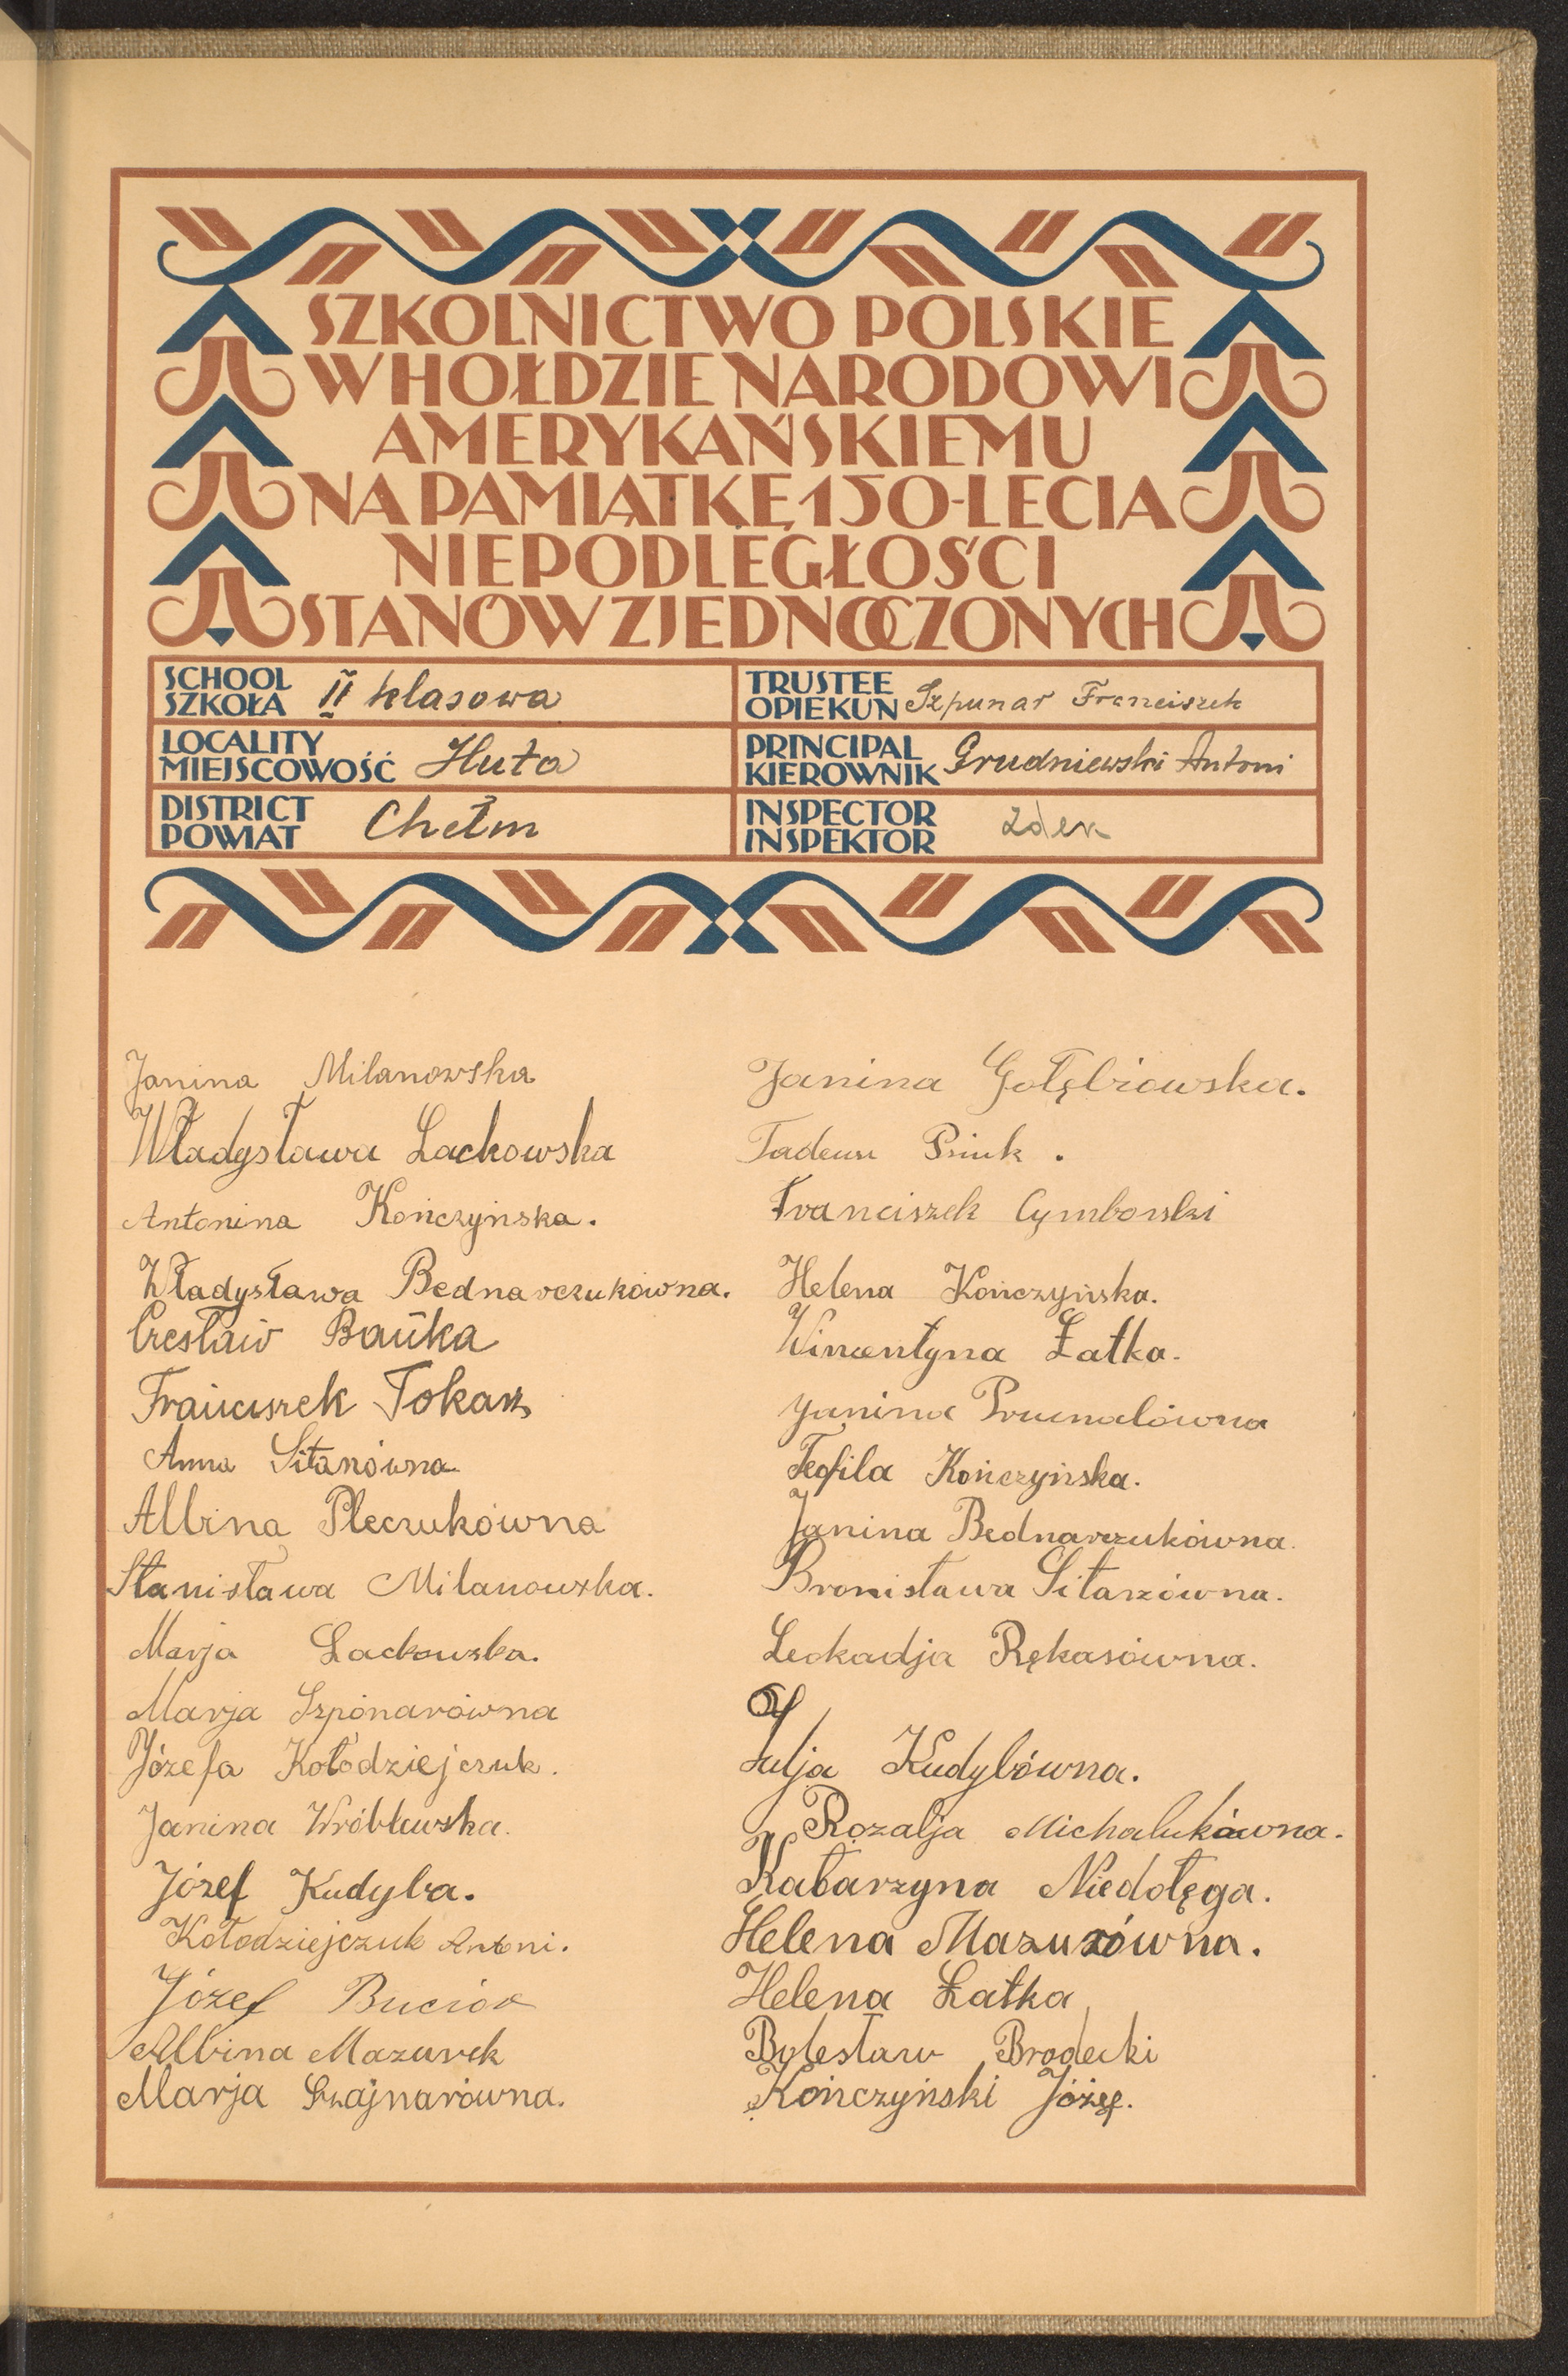 SZKOLNICTWO POLSKIE
W HOŁDZIE NARODOWI
AMERYKAŃSKIEMU
NA PAMIĄTKĘ 150-LECIA
NIEPODLEGŁOŚCI
STANÓW ZJEDNOCZONYCH
SCHOOL
SZKOŁA II klasowa
TRUSTEE
OPIEKUN Szpunar Franciszek
LOCALITY
MIEJSCOWOŚĆ Huta
PRINCIPAL
KIEROWNIK Grudniewski Antoni
DISTRICT
POWIAT Chełm
INSPECTOR
INSPEKTOR
Janina Milanowska
Władysława Lackowska
Antonina Kończyńska.
Władysława Bednarczukówna.
Czesław Bańka
Franciszek Tokarz
Anna Sitarzówna
Albina Pleczukówna
Stanisława Milanowska.
Marja Lackowska.
Marja Szpónarówna
Józefa Kołodziejczuk.
Janina Wróblewska.
Józef Kudyba.
Kołodziejczuk Antoni.
Józef Buciór
Albina Mazurek
Marja Szajnarówna.
Janina Gołębiowska.
Tadeusz
Franciszek Cymborski
Helena Kończyńska.
Wincentyna Łatka.
Janina
Teofila Kończyńska.
Janina Bednarczukówna.
Bronisława Sitarzówna.
Leokadja Rękasówna.
Julja Kudybówna.
Rozalja Michalukówna.
Katarzyna Niedołęga.
Helena Mazurówna.
Helena Łatka
Bolesław Brodecki
Kończyński Józef.